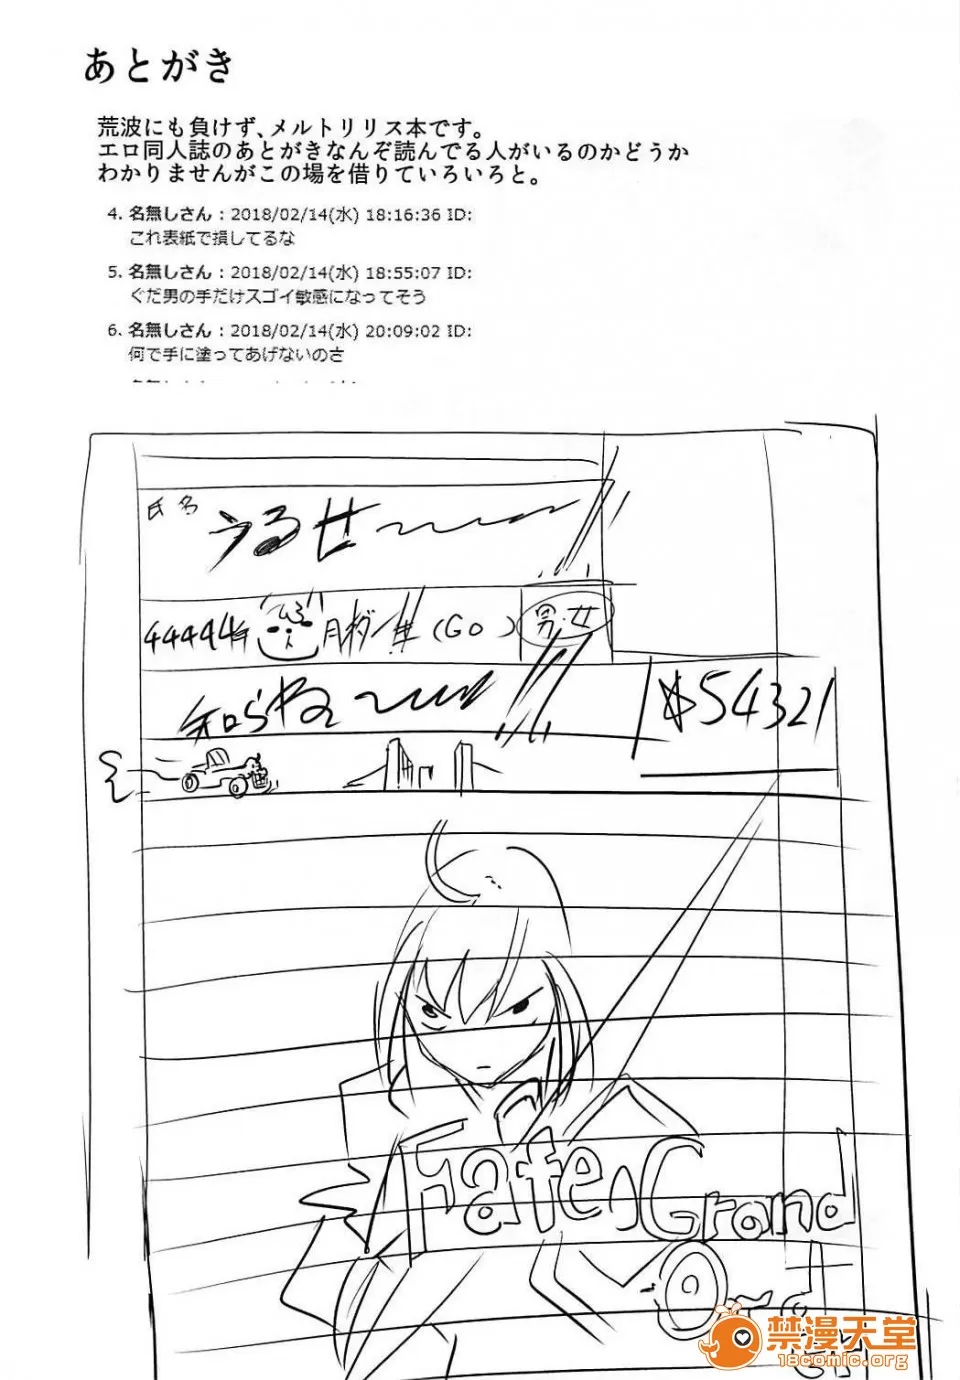 あとがき
荒波にも負けず、メルトリリス本です。
エロ同人誌のあとがきなんぞ読んでる人がいるのかどうか
わかりませんがこの場を借りていろいろと。
4. 名無しさん : 2018/02/14(水) 18:16:36 ID:
これ表紙で損してるな
5. 名無しさん : 2018/02/14(水) 18:55:07 ID:
ぐだ男の手だけスゴイ敏感になってそう
6. 名無しさん : 2018/02/14(水) 20:09:02 ID:
何で手に塗ってあげないのさ
氏名
うるせ
44444年
月
(GO)
男・女
知らね
54321
Fate
Grand
Ord
禁漫天堂
18comic.org